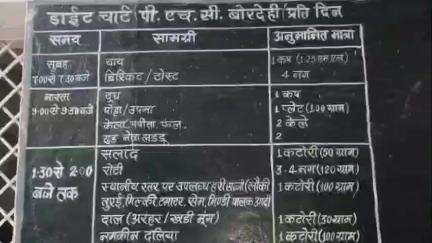 डाईट चार्ट पी. एच. सी. बोरदेही प्रति दिन
समय सामग्री अनुमानित मात्रा
सुबह चाय 1 कप (125 एम एल)
7:00 से 7:30 बजे बिस्किट / टोस्ट 4 नग
नाश्ता दूध 1 कप
9:00 से 9:30 बजे पोहा / उपमा 1 प्लेट (100 ग्राम)
केला, पपीता, फल 2 केले
गुड़ मेवा लड्डू 2
सलाद 1 कटोरी (50 ग्राम)
1:30 से 2:00 रोटी 3-4 नग (120 ग्राम)
बजे तक स्थानीय स्तर पर उपलब्ध हरी सब्जी (लौकी 1 कटोरी (100 ग्राम)
तुरई, गिलकी, टमाटर, सेम, भिण्डी पालक आदि)
दाल (अरहर / खडी मूंग) 1 कटोरी (30 ग्राम)
नमकीन दलिया 1 कटोरी (100 ग्राम)